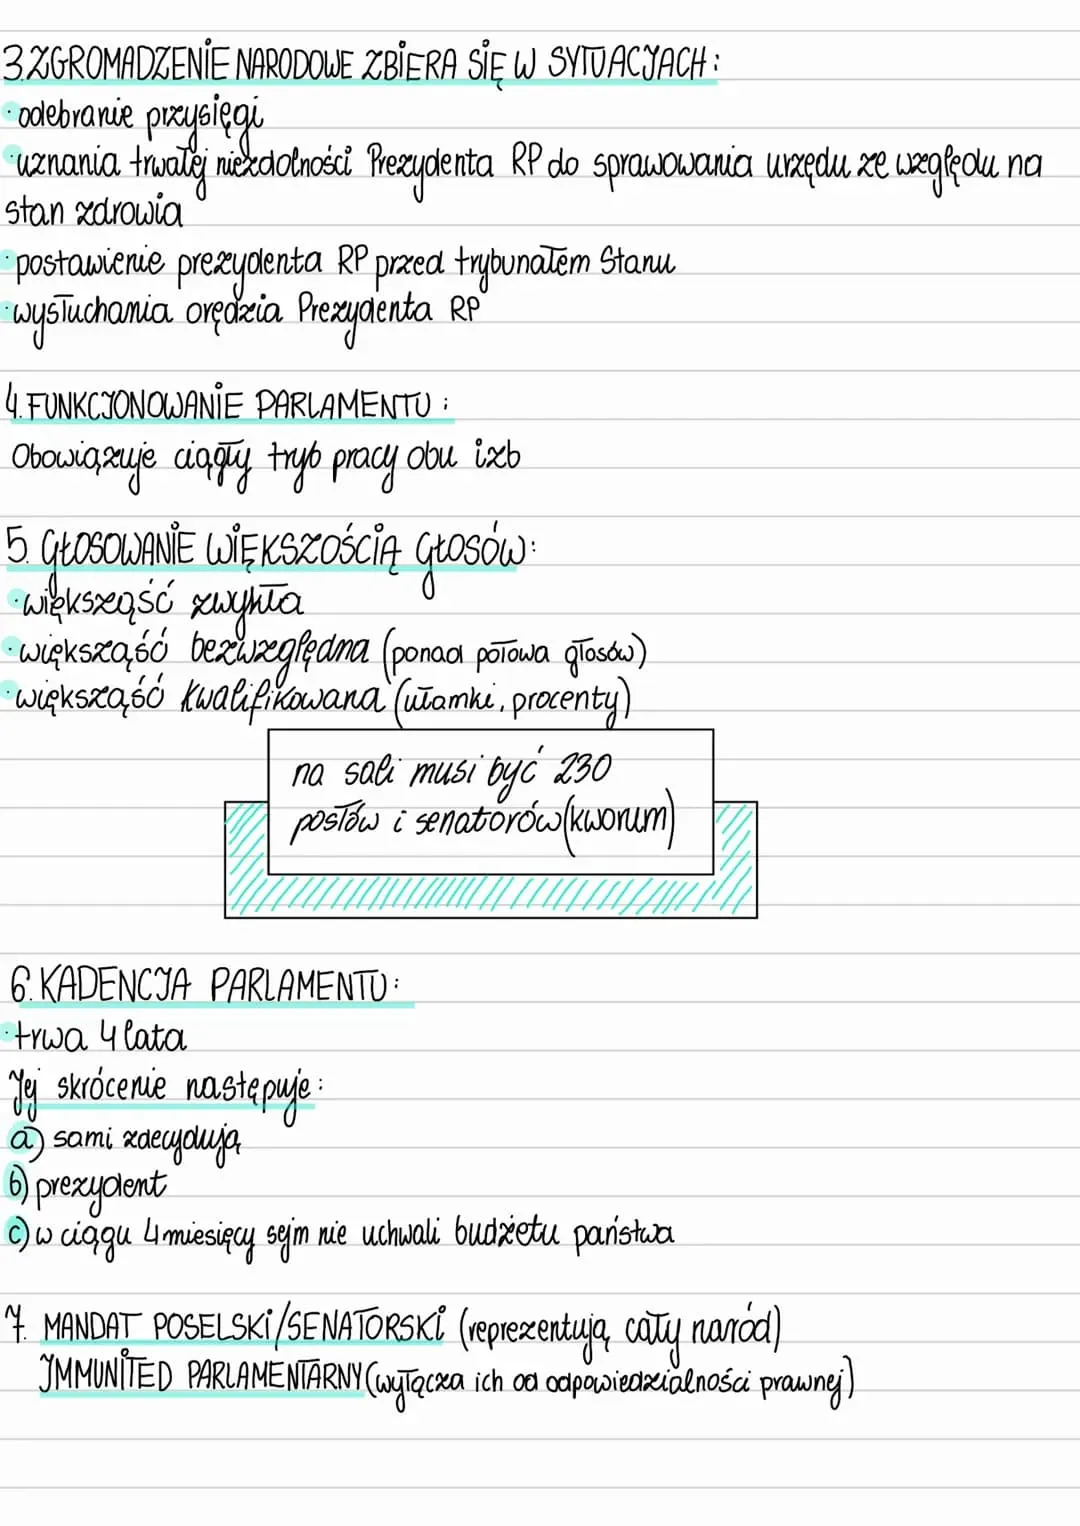 3.ZGROMADZENIE NARODOWE ZBIERA SIĘ W SYTUACJACH:
·odebranie przysięgi
·uznania trwałej niezdolności Prezydenta RP do sprawowania urzędu ze względu na
stan zdrowia
·postawienie prezydenta RP przed trybunałem Stanu
·wysłuchania orędzia Prezydenta RP
4.FUNKCJONOWANIE PARLAMENTU:
Obowiązuje ciągły tryb pracy obu izb
5. GŁOSOWANIE WIĘKSZOŚCIĄ GŁOSÓW:
·większąść zwykła
·większąść bezwzględna (ponad połowa głosów)
·większąść kwalifikowana (ułamki, procenty)
na sali musi być 230
posłów i senatorów (kworum)
6.KADENCJA PARLAMENTU:
·trwa 4 lata
Jej skrócenie następuje:
a) sami zdecydują
b) prezydent
c) w ciągu 4 miesięcy sejm nie uchwali budżetu państwa
7. MANDAT POSELSKI/SENATORSKI (reprezentują cały naród)
IMMUNITED PARLAMENTARNY (wyłącza ich od odpowiedzialności prawnej)